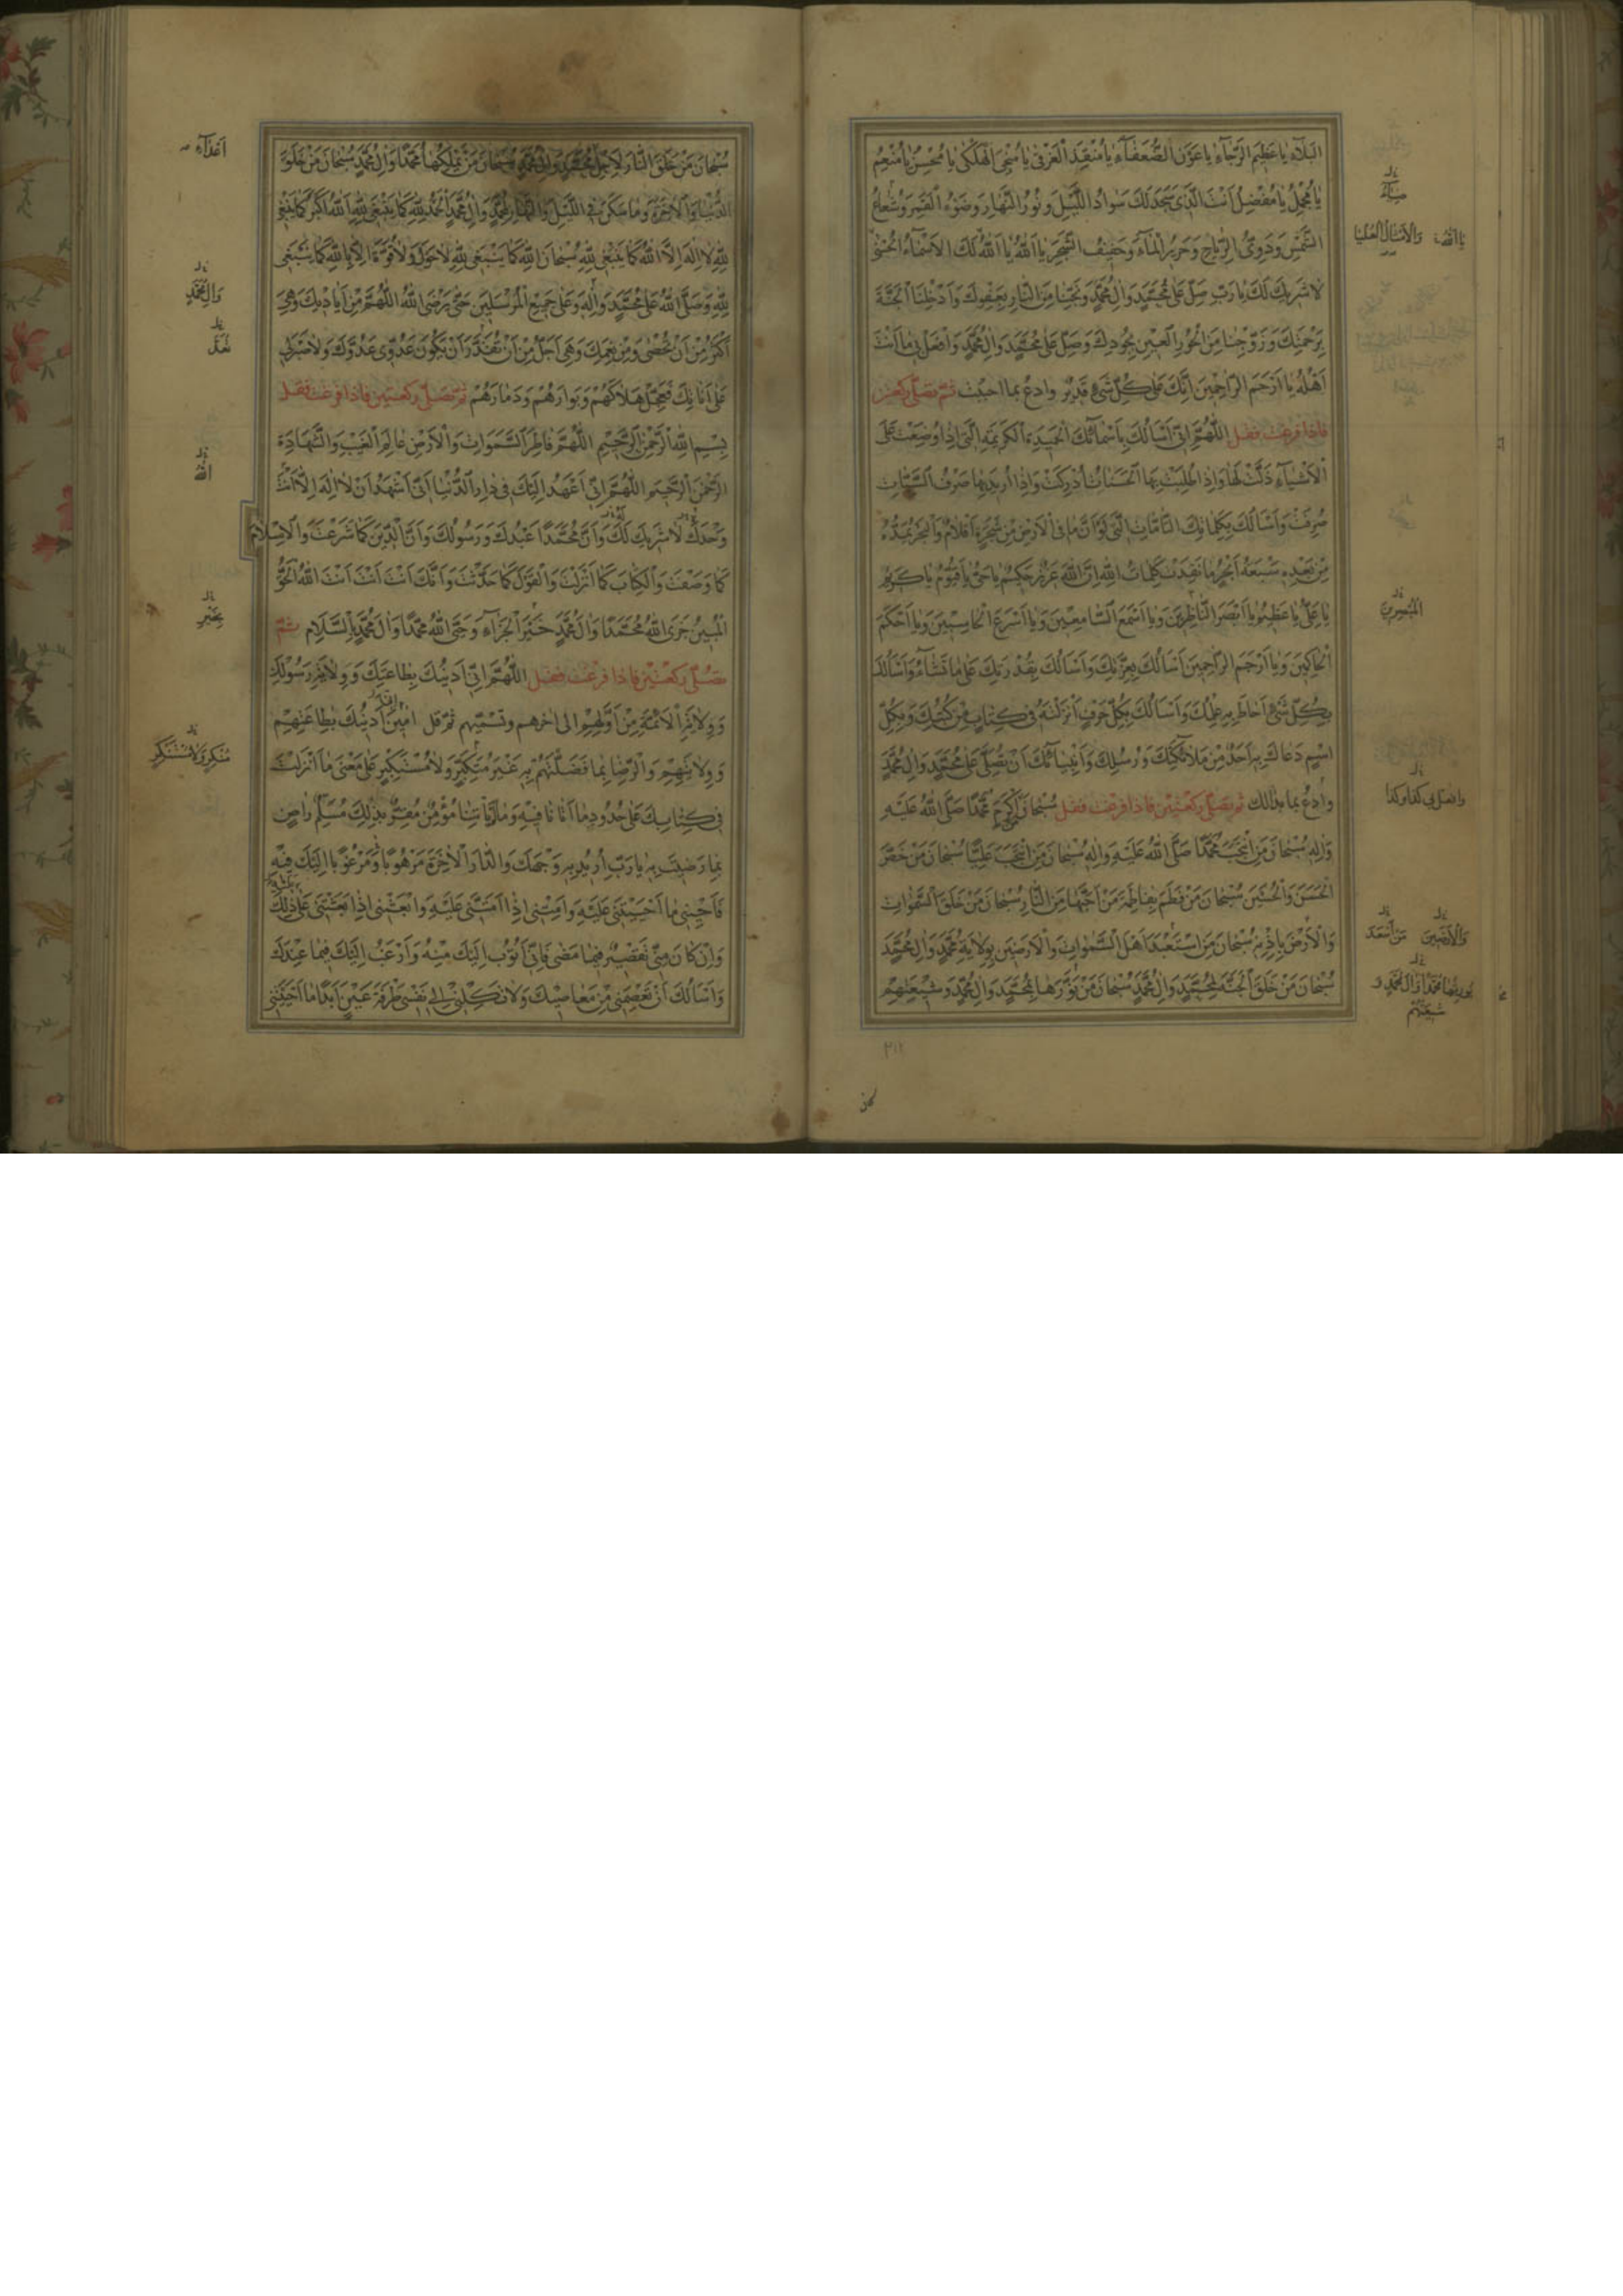 البلاء يا عظيم الرجاء يا عون الضعفاء يا منقذ الغرقى يا منجي الهلكى يا محسن يا منعم
يا مجمل يا مفضل انت الذي سجد لك سواد الليل ونور النهار وضوء القمر وشعاع
الشمس ودوي الرياح وخرير الماء وحفيف الشجر يا الله يا الله لك الاسماء الحسنى
لا شريك لك يا رب صل على محمد وال محمد ونجنا من النار بعفوك وادخلنا الجنة
برحمتك وزوجنا من الحور العين بجودك وصل على محمد وال محمد وافعل بي ما انت
اهله يا ارحم الراحمين انك على كل شيء قدير وادع بما احببت ثم تصلي ركعتين
فاذا فرغت فقل اللهم اني اسالك باسمائك الحميدة الكريمة التي اذا وضعت على
الاشياء ذلت لها واذا طلبت بها الحسنات ادركت واذا اريد بها صرف السيئات
صرفت واسالك بكلماتك التامات التي لو ان ما في الارض من شجرة اقلام والبحر يمده
من بعده سبعة ابحر ما نفدت كلمات الله ان الله عزيز حكيم يا حي يا قيوم يا كريم
يا علي يا عظيم يا ابصر الناظرين ويا اسمع السامعين ويا اسرع الحاسبين ويا احكم
الحاكمين ويا ارحم الراحمين اسالك بعزتك واسالك بقدرتك على ما تشاء واسالك
بكل شيء احاط به علمك واسالك بكل حرف انزلته في كتاب من كتبك وبكل
اسم دعاك به احد من ملائكتك ورسلك وانبيائك ان تصلي على محمد وال محمد
وادع بما بدا لك ثم تصلي ركعتين فاذا فرغت فقل سبحان من اكرم محمدا صلى الله عليه
واله سبحان من انتجب محمدا صلى الله عليه واله سبحان من انتجب عليا سبحان من خص
الحسن والحسين سبحان من فطم بفاطمة من احبها من النار سبحان من خلق السموات
والارض باذنه سبحان من استعبد اهل السموات والارضين بولاية محمد وال محمد
سبحان من خلق الجنة لمحمد وال محمد سبحان من نورها لمحمد وال محمد وشيعتهم
ضياء
يا الله والامثال العليا
المبصرين
وافعل بي كذا وكذا
والارضين
يورثها محمدا وال محمد و
شيعتهم
٢١١
سبحان من خلق النار لاجل محمد وال محمد سبحان من يملكها محمدا وال محمد سبحان من خلق
الدنيا والاخرة وما سكن في الليل والنهار لمحمد وال محمد الحمد لله كما ينبغي لله الله اكبر كما ينبغي
لله لا اله الا الله كما ينبغي لله سبحان الله كما ينبغي لله لا حول ولا قوة الا بالله كما ينبغي
لله وصلى الله على محمد واله وعلى جميع المرسلين حتى يرضى الله اللهم من اياديك وهي
اكثر من ان تحصى ومن نعمك وهي اجل من ان تغادر ان يكون عدوي عدوك ولا صبر لي
على اناتك فعجل هلاكهم وبوارهم ودمارهم ثم تصلي ركعتين فاذا فرغت فقل
بسم الله الرحمن الرحيم اللهم فاطر السموات والارض عالم الغيب والشهادة
الرحمن الرحيم اللهم اني اعهد اليك في دار الدنيا اني اشهد ان لا اله الا انت
وحدك لا شريك لك وان محمدا عبدك ورسولك وان الدين كما شرعت والاسلام
كما وصفت والكتاب كما انزلت والقول كما حدثت وانك انت انت انت الله الحق
المبين جزى الله محمدا وال محمد خير الجزاء وحيى الله محمدا وال محمد بالسلام ثم
تصلي ركعتين فاذا فرغت فقل اللهم اني ادينك بطاعتك وولايتك وولاية رسولك
وولاية الائمة من اولهم الى اخرهم وتسميهم ثم قل امين ادينك بطاعتهم
وولايتهم والرضا بما فضلتهم به غير متكبر ولا مستكبر على معنى ما انزلت
في كتابك على حدود ما اتانا فيه وما لم ياتنا مؤمن مقر بذلك مسلم راض
بما رضيت به يا رب اريد به وجهك والدار الاخرة مرهوبا ومرغوبا اليك فيه
فاحيني ما احييتني عليه وامتني اذا امتني عليه وابعثني اذا بعثتني على ذلك
وان كان مني تقصير فيما مضى فاني اتوب اليك منه وارغب اليك فيما عندك
واسالك ان تعصمني من معاصيك ولا تكلني الى نفسي طرفة عين ابدا ما احييتني
اعداء
وال محمد
الله
بخير
منكر ولا مستنكر